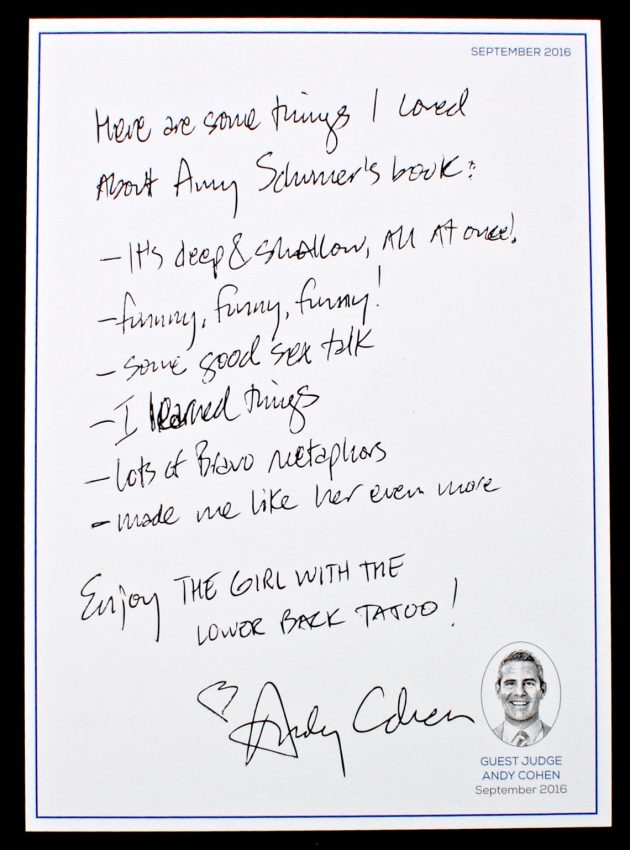 SEPTEMBER 2016
Here are some things I loved
About Amy Schumer's book:
- It's deep & shallow, All At once!
- funny, funny, funny!
- some good sex talk
- I learned things
- lots of Bravo metaphors
- made me like her even more
Enjoy THE GIRL WITH THE
LOWER BACK TATOO!
♡ Andy Cohen
GUEST JUDGE
ANDY COHEN
September 2016